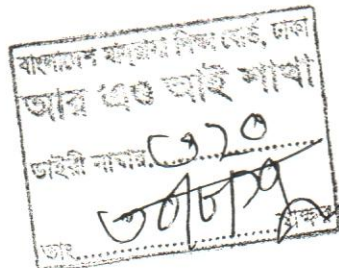 বাংলাদেশ মাদ্রাসা শিক্ষা বোর্ড, ঢাকা
আর এন্ড আই শাখা
ডাইরী নাম্বার ৩২০
তাং ৩০/৮/